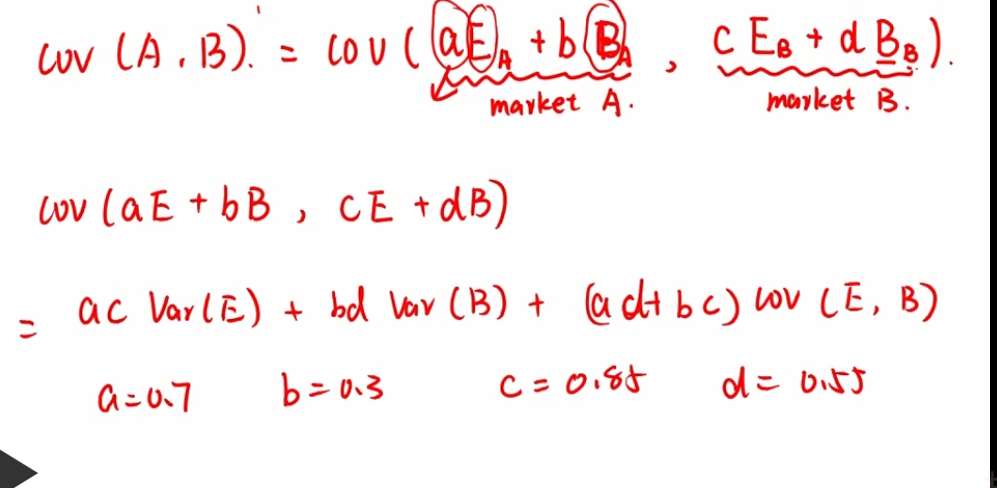 cov (A, B). = cov ( aE_A + b B_A , c E_B + d B_B ).
market A. market B.
cov (aE + bB , cE + dB)
= ac Var(E) + bd Var (B) + (ad + bc) cov (E, B)
a=0.7 b=0.3 c=0.85 d=0.55